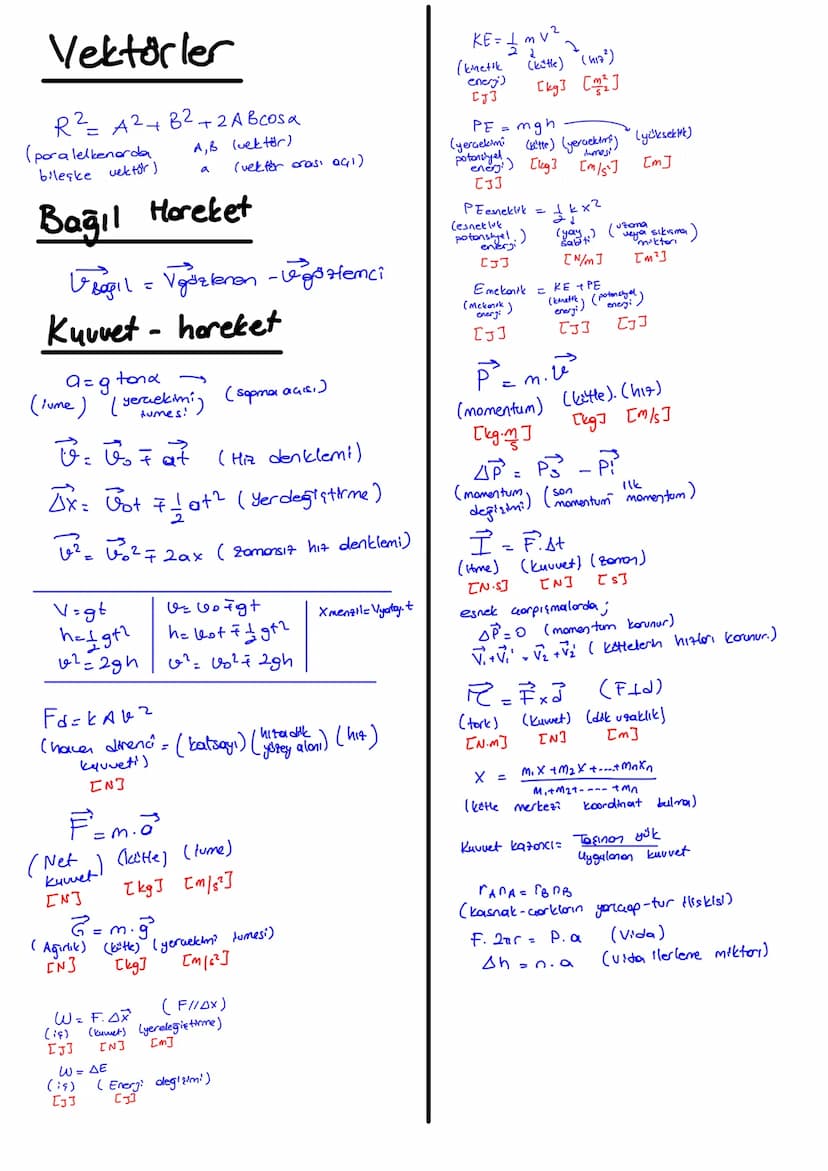 Vektörler
R² = A² + B² + 2ABcosα
(paralelkenarda A,B (vektör)
bileşke vektör) a (vektör arası açı)
Bağıl Hareket
V⃗bağıl = V⃗gözlenen - V⃗gözlemci
Kuvvet - hareket
a = g tanα →
(ivme) (yerçekimi ivmesi) (sapma açısı)
V⃗ = V⃗₀ ∓ a⃗t (Hız denklemi)
Δ⃗x = V⃗₀t ∓ 1/2 at² (Yerdeğiştirme)
V⃗² = V⃗₀² ∓ 2ax (zamansız hız denklemi)
V=gt
h=1/2 gt²
v²=2gh
v=v₀∓gt
h=v₀t∓1/2 gt²
v²=v₀²∓2gh
Xmenzil=Vyatay.t
Fd=kAv²
(havan direnci kuvveti) = (katsayı) (hıza dik yüzey alanı) (hız)
[N]
F⃗ = m.a⃗
(Net kuvvet) (kütle) (ivme)
[N] [kg] [m/s²]
G⃗ = m.g⃗
(Ağırlık) (kütle) (yerçekimi ivmesi)
[N] [kg] [m/s²]
W = F.Δx⃗ (F//Δx)
(iş) (kuvvet) (yerdeğiştirme)
[J] [N] [m]
W = ΔE
(iş) (Enerji değişimi)
[J] [J]
KE = 1/2 m v²
(kinetik enerji) (kütle) (hız²)
[J] [kg] [m²/s²]
PE = mgh
(yerçekimi potansiyel enerji) (kütle) (yerçekimi ivmesi) (yükseklik)
[J] [kg] [m/s²] [m]
PEesneklik = 1/2 k x²
(esneklik potansiyel enerji) (yay sabiti) (uzama veya sıkışma miktarı)
[J] [N/m] [m²]
Emekanik = KE + PE
(mekanik enerji) (kinetik enerji) (potansiyel enerji)
[J] [J] [J]
P⃗ = m.v⃗
(momentum) (kütle).(hız)
[kg.m/s] [kg] [m/s]
ΔP⃗ = P⃗s - P⃗i
(momentum değişimi) (son momentum - ilk momentum)
I⃗ = F⃗.Δt
(itme) (kuvvet) (zaman)
[N.s] [N] [s]
esnek çarpışmalarda;
ΔP⃗=0 (momentum korunur)
V⃗₁+V⃗₁' = V⃗₂+V⃗₂' (kütlelerin hızları korunur.)
τ⃗ = F⃗xd⃗ (F⊥d)
(tork) (kuvvet) (dik uzaklık)
[N.m] [N] [m]
X = m₁x+m₂x+....+mₙxₙ / m₁+m₂+-----+mₙ
(kütle merkezi koordinat bulma)
Kuvvet kazancı = Taşınan yük / Uygulanan kuvvet
rAnA = rBnB
(kasnak-çarkların yarıçap-tur ilişkisi)
F. 2πr = P.a (Vida)
Δh = n.a (vida ilerleme miktarı)